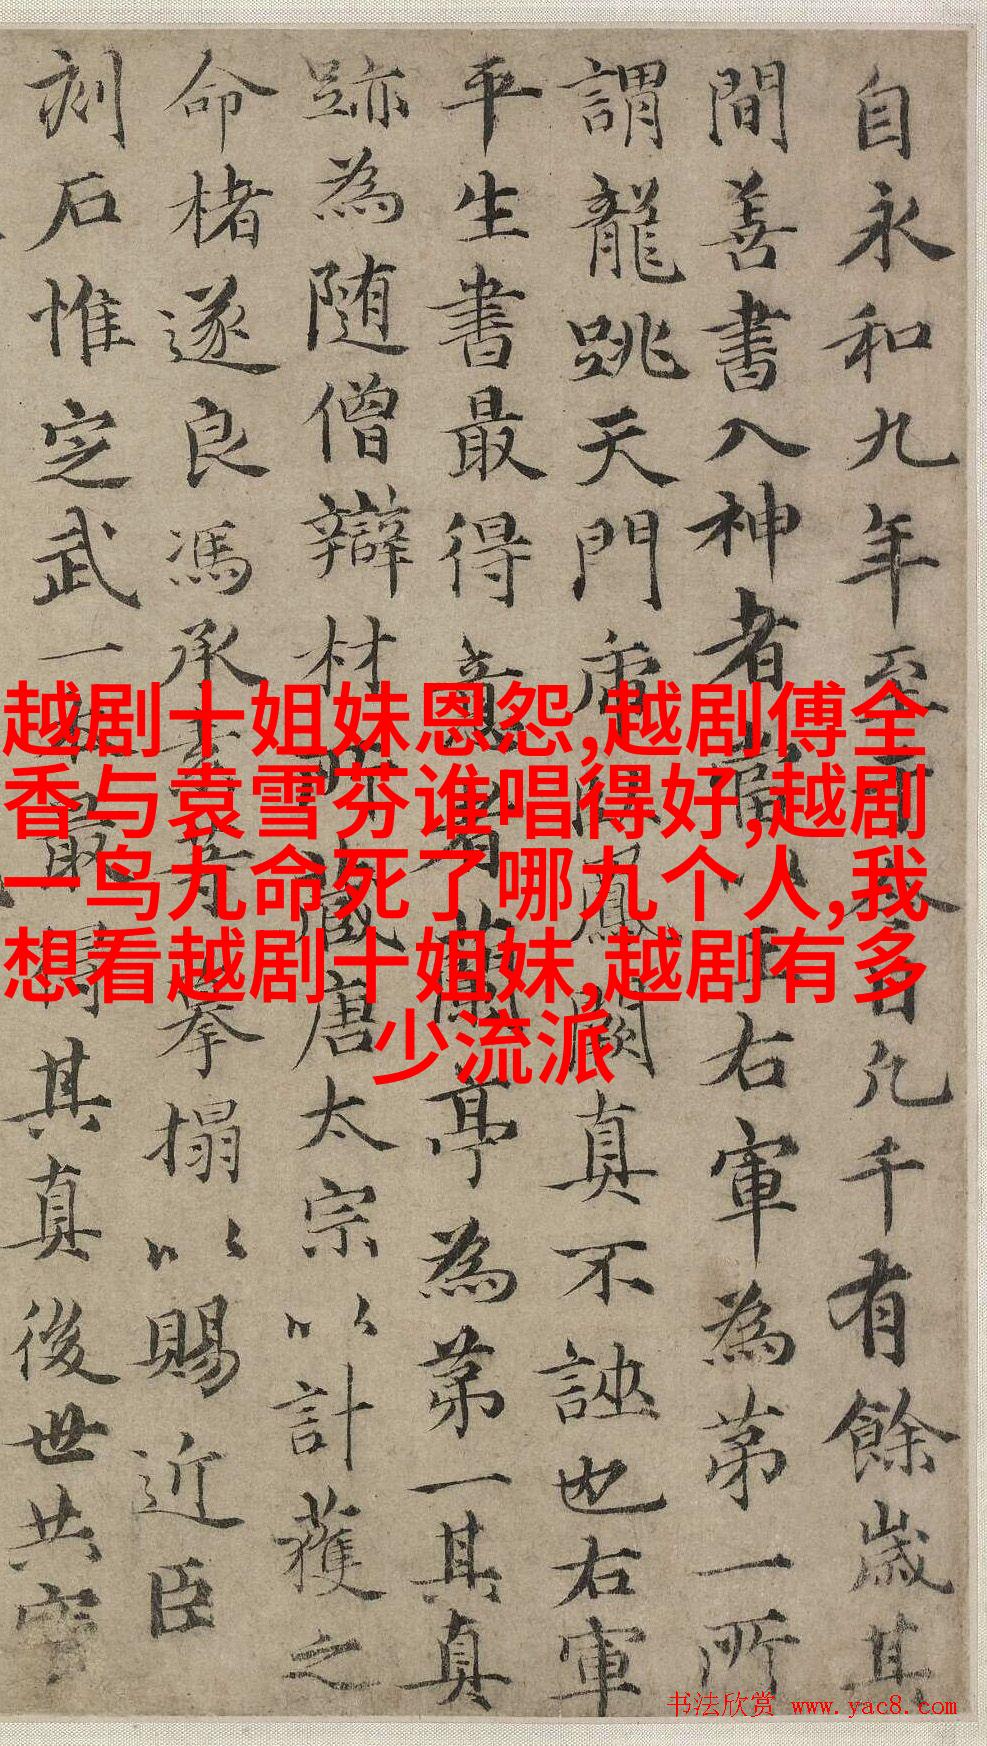 自永和九年至凡千有餘歲其
間善書入神者當以王右軍為第一所
謂龍跳天門虎臥鳳闕真不誣也右軍
平生書最得意者蘭亭為第一其真
跡為随僧辯材所藏唐太宗以計獲之
命楮遂良馮承素等摹搨以賜近臣
刻石惟定武一本最得其真後世共寶
越剧十姐妹恩怨,越剧傅全
香与袁雪芬谁唱得好,越剧
一鸟九命死了哪九个人,我
想看越剧十姐妹,越剧有多
少流派
书法欣赏 www.yac8.com